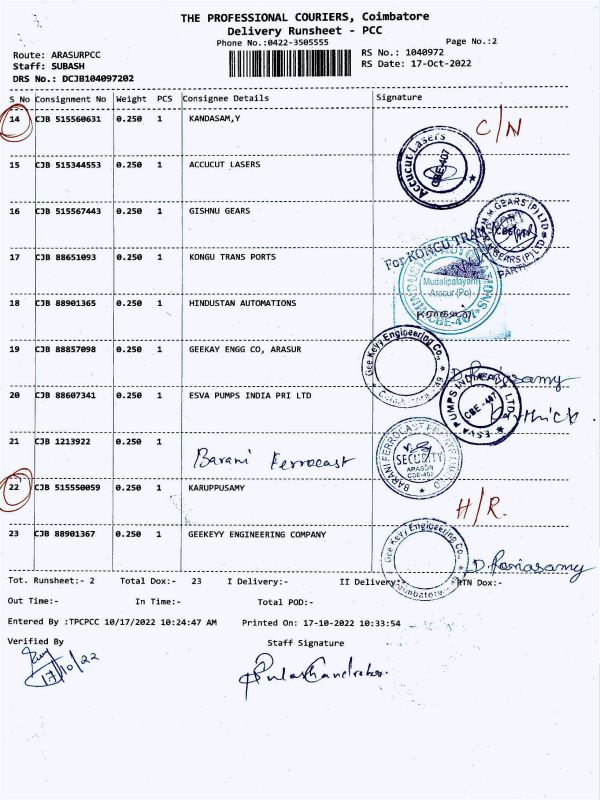 THE PROFESSIONAL COURIERS, Coimbatore
Delivery Runsheet - PCC
Phone No.:0422-3505555 Page No.:2
Route: ARASURPCC RS No.: 1040972
Staff: SUBASH RS Date: 17-Oct-2022
DRS No.: DCJB104097202
S No Consignment No Weight PCS Consignee Details Signature
14 CJB 515560631 0.250 1 KANDASAM,Y C/N
15 CJB 515344553 0.250 1 ACCUCUT LASERS Accucut Lasers CBE-407
16 CJB 515567443 0.250 1 GISHNU GEARS GEARS (P) LTD
17 CJB 88651093 0.250 1 KONGU TRANS PORTS For KONGU TRANSPORT
18 CJB 88901365 0.250 1 HINDUSTAN AUTOMATIONS HINDUSTAN AUTOMATIONS Mudalipalayam Arasur (Po) CBE-407
19 CJB 88857098 0.250 1 GEEKAY ENGG CO, ARASUR Gee Keyy Engineering Co., Coimbatore - 49
20 CJB 88607341 0.250 1 ESVA PUMPS INDIA PRI LTD ESVA PUMPS INDIA PVT LTD. CBE-407
21 CJB 1213922 0.250 1 Barani Ferrocast BARANI FERROCAST SECURITY ARASUR CBE-407
22 CJB 515550059 0.250 1 KARUPPUSAMY H/R.
23 CJB 88901367 0.250 1 GEEKEYY ENGINEERING COMPANY Gee Keyy Engineering Co., Coimbatore - 49
Tot. Runsheet:- 2 Total Dox:- 23 I Delivery:- II Delivery:- RTN Dox:-
Out Time:- In Time:- Total POD:-
Entered By :TPCPCC 10/17/2022 10:24:47 AM Printed On: 17-10-2022 10:33:54
Verified By Staff Signature
17/10/22